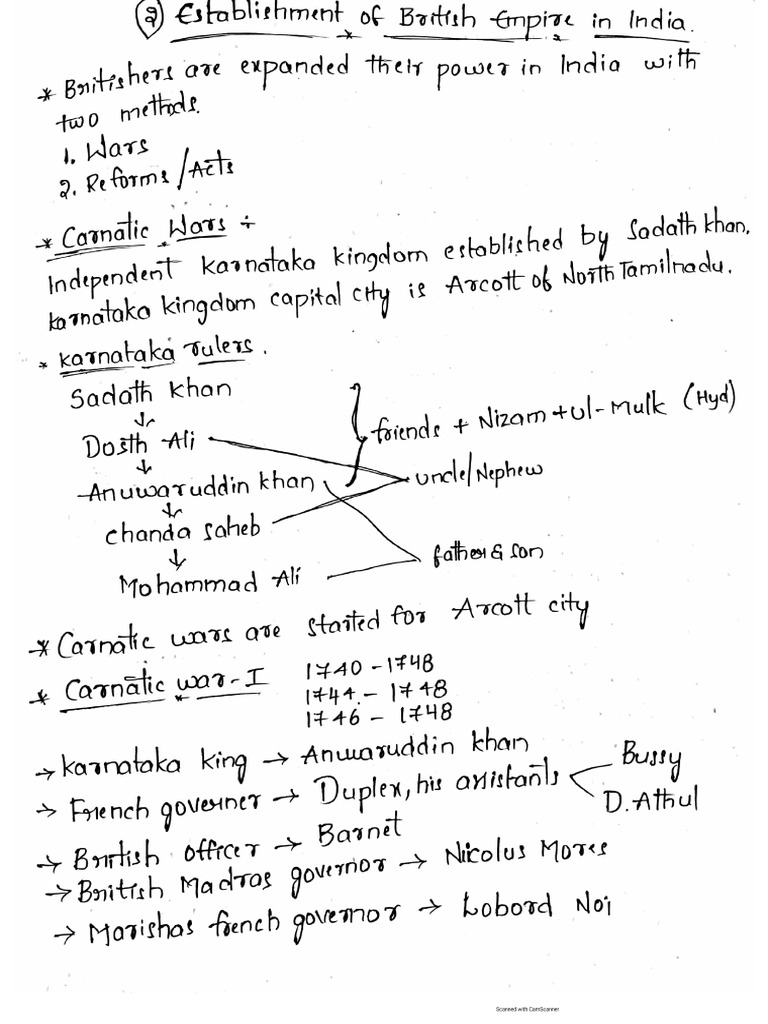 ② Establishment of British Empire in India.
* Britishers are expanded their power in India with
two methods.
1. Wars
2. Reforms/Acts
* Carnatic Wars ÷
Independent Karnataka kingdom established by Sadath khan.
Karnataka kingdom capital city is Arcott of North Tamilnadu.
* Karnataka rulers.
Sadath khan
↓
Dosth Ali
↓
Anuwaruddin khan
↓
Chanda saheb
↓
Mohammad Ali
friends + Nizam+ul-Mulk (Hyd)
uncle/Nephew
father & son
* Carnatic wars are started for Arcott city
* Carnatic war-I
1740-1748
1744-1748
1746-1748
→ Karnataka king → Anwaruddin khan
→ French governer → Duplex, his assistants
Bussy
D. Athul
→ British officer → Barnet
→ British Madras governor → Nicolus Mores
→ Marishas french governor → Lobord Noi
Scanned with CamScanner